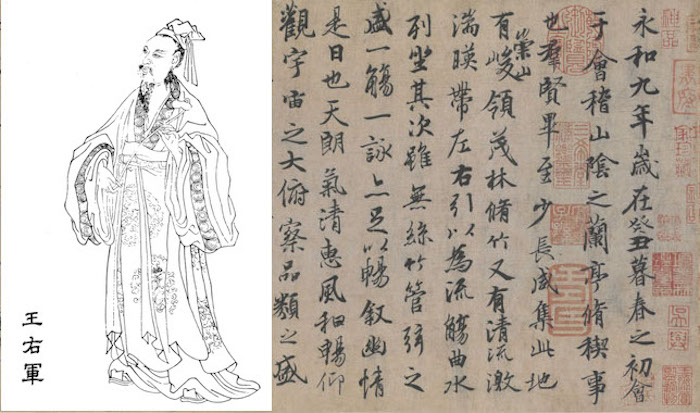 王右軍
永和九年歲在癸丑暮春之初會
于會稽山陰之蘭亭脩稧事
也羣賢畢至少長咸集此地
有崇山峻領茂林脩竹又有清流激
湍暎帶左右引以為流觴曲水
列坐其次雖無絲竹管弦之
盛一觴一詠亦足以暢敘幽情
是日也天朗氣清惠風和暢仰
觀宇宙之大俯察品類之盛